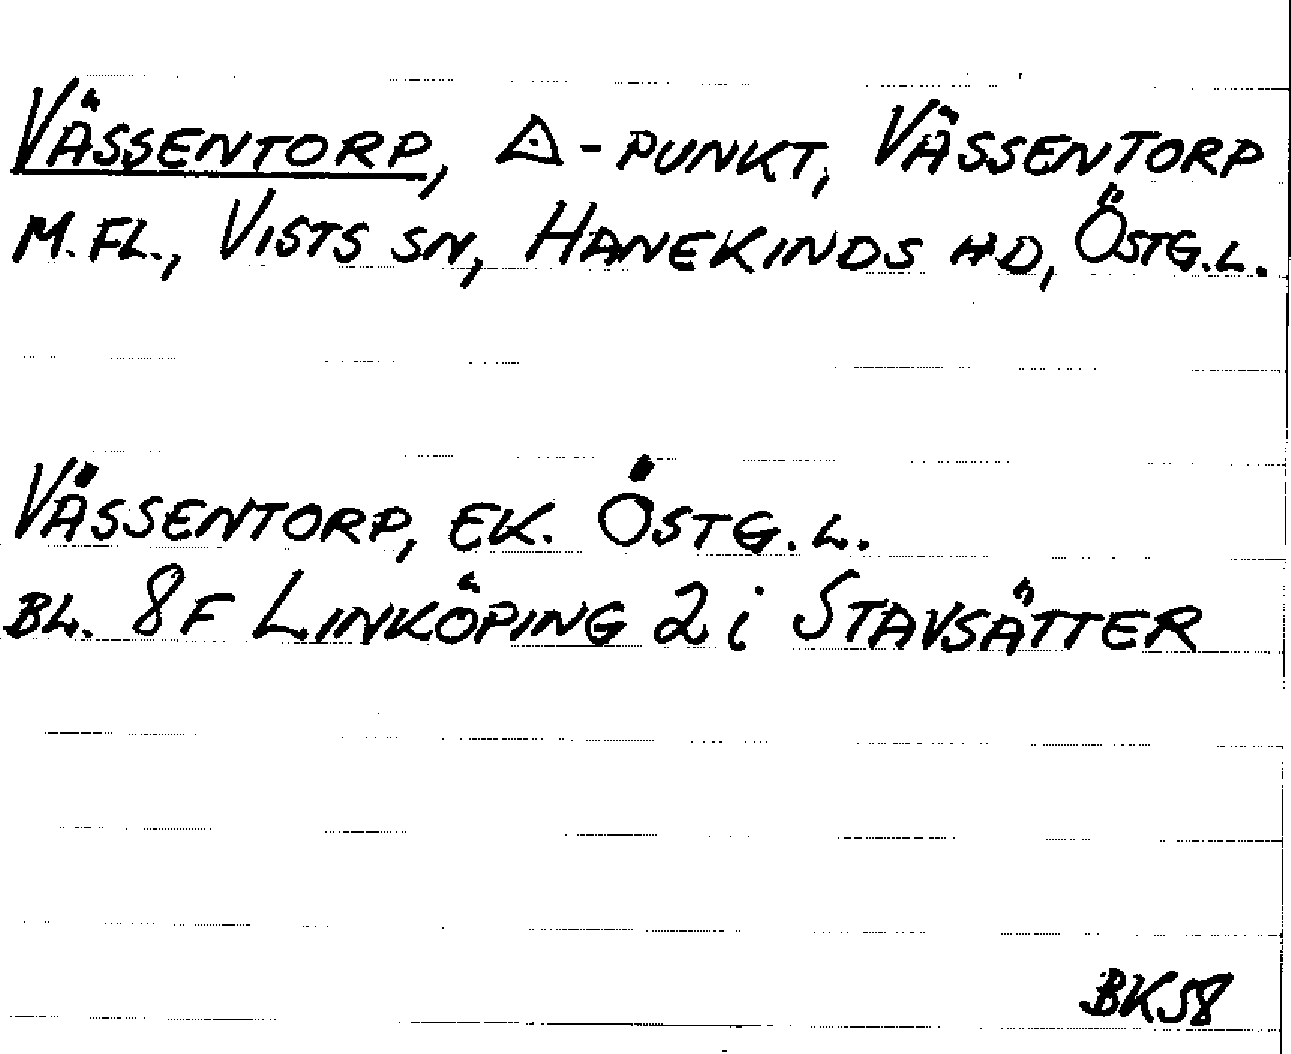 VÄSSENTORP, △-PUNKT, VÄSSENTORP
M.FL., VISTS SN, HANEKINDS HD, ÖSTG.L.
VÄSSENTORP, EK. ÖSTG.L.
BL. 8F LINKÖPING 2i STAVSÄTTER
BK58